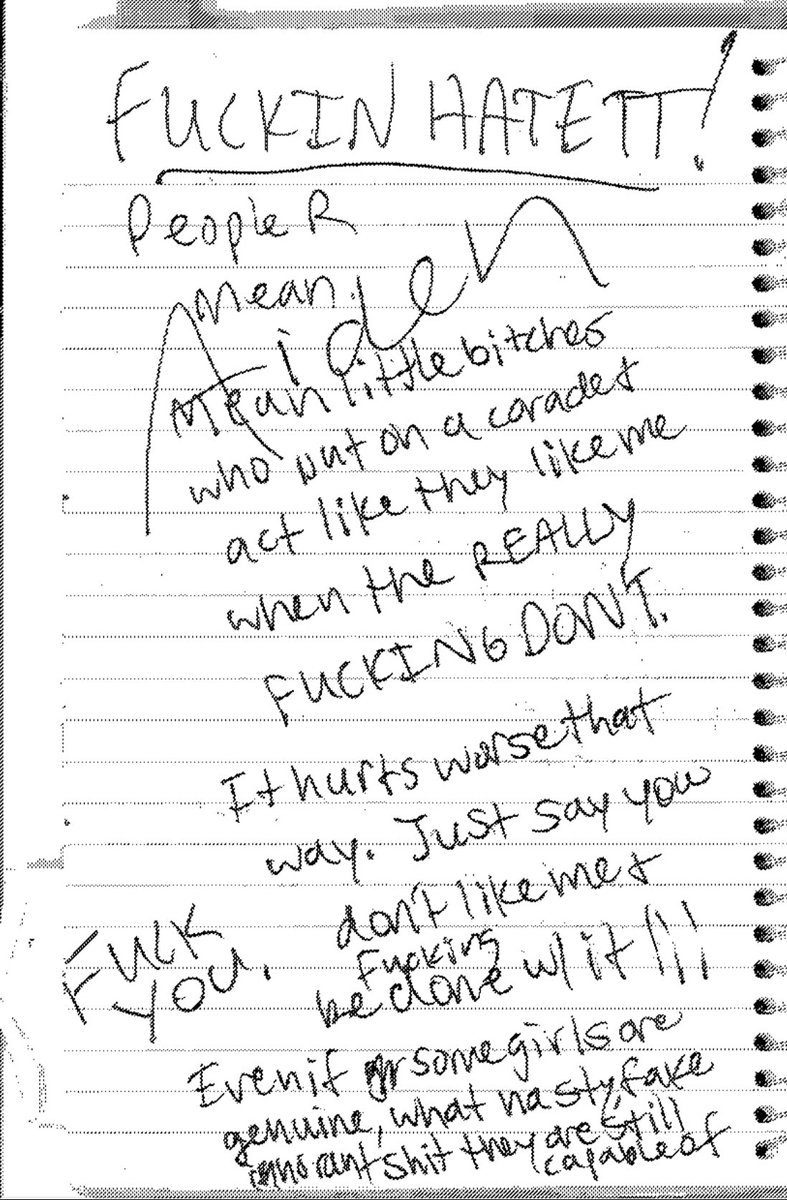 FUCKIN HATE IT!
People R
Mean.
Aiden
Mean little bitches
who put on a carade +
act like they like me
when the REALLY
FUCKING DON'T.
It hurts worse that
way. Just say you
don't like me +
Fucking
be done w/ it!!!
FUCK
YOU.
Even if some girls are
genuine, what nasty, fake
ignorant shit they are still
capable of